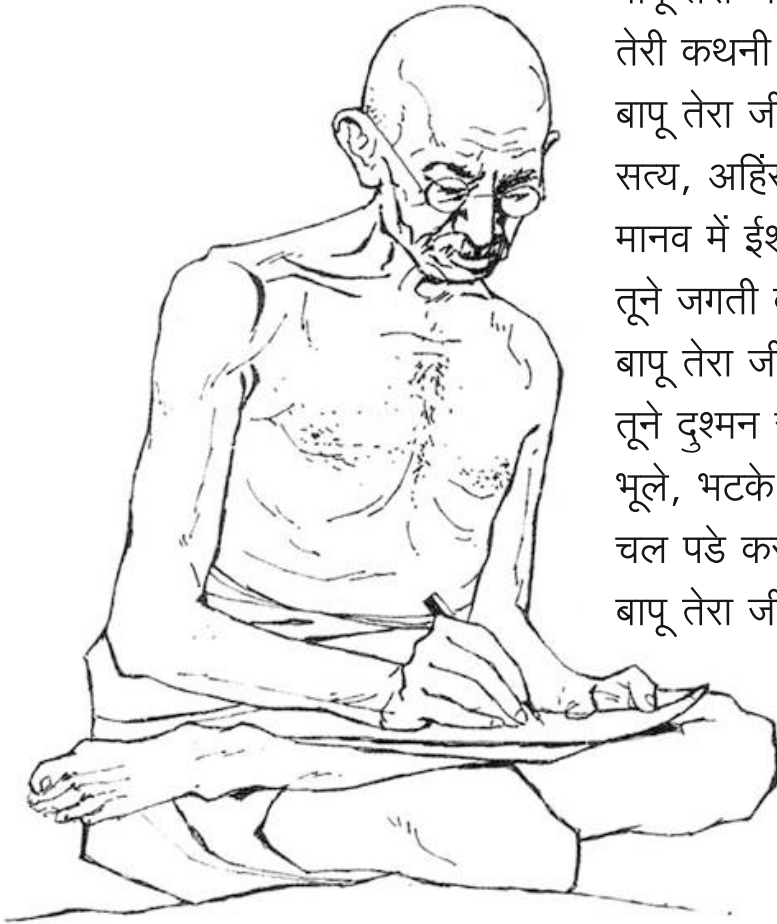 तेरी कथनी
बापू तेरा जी
सत्य, अहिंस
मानव में ईश
तूने जगती
बापू तेरा जी
तूने दुश्मन
भूले, भटके
चल पडे
बापू तेरा जी